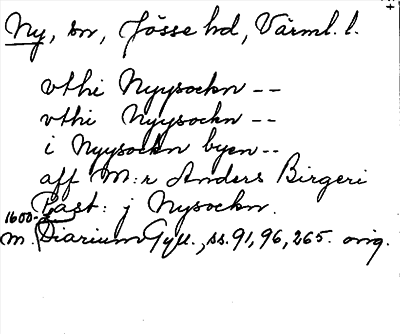 Ny, sn, Jösse hd, Värml. l.
vthi Nyysockn --
vthi Nyysockn --
i Nyysockn byen --
aff M:r Anders Birgeri
Past: j Nysockn.
1600-
m. Diarium Gyll., ss. 91, 96, 265. orig.